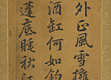 外正風雪擁
酒缸何如釣
蓬底睡秋江